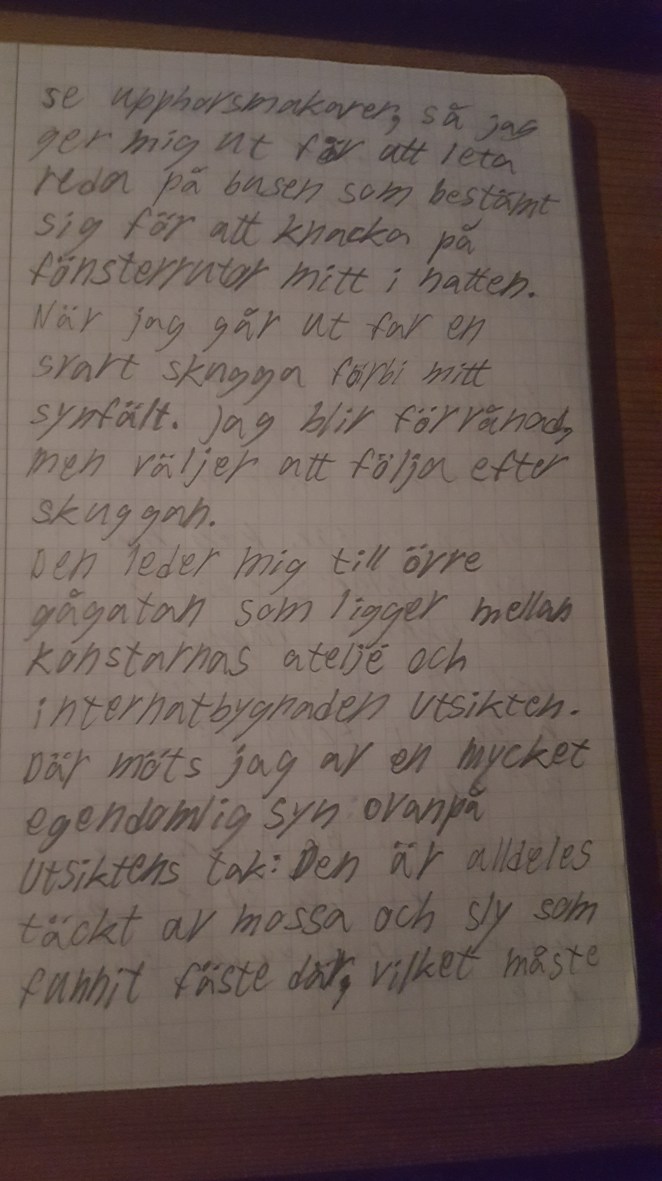 se upphorsmakaren, så jag
ger mig ut för att leta
reda på busen som bestämt
sig för att knacka på
fönsterrutor mitt i natten.
När jag går ut far en
svart skugga förbi mitt
synfält. Jag blir förvånad,
men väljer att följa efter
skuggan.
Den leder mig till övre
gågatan som ligger mellan
konstarnas ateljé och
internatbygnaden Utsikten.
Där möts jag av en mycket
egendomlig syn ovanpå
Utsiktens tak: Den är alldeles
täckt av mossa och sly som
funnit fäste där, vilket måste